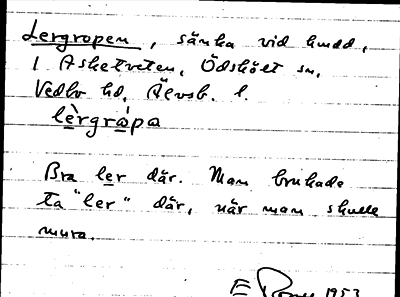 Lergropen, sänka vid kudd,
i Asketveten, Ödskölt sn,
Vedbo hd, Älvsb. l.
lèrgrápa
Bra ler där. Man brukade
ta "ler" där, när man skulle
mura.
E 1953